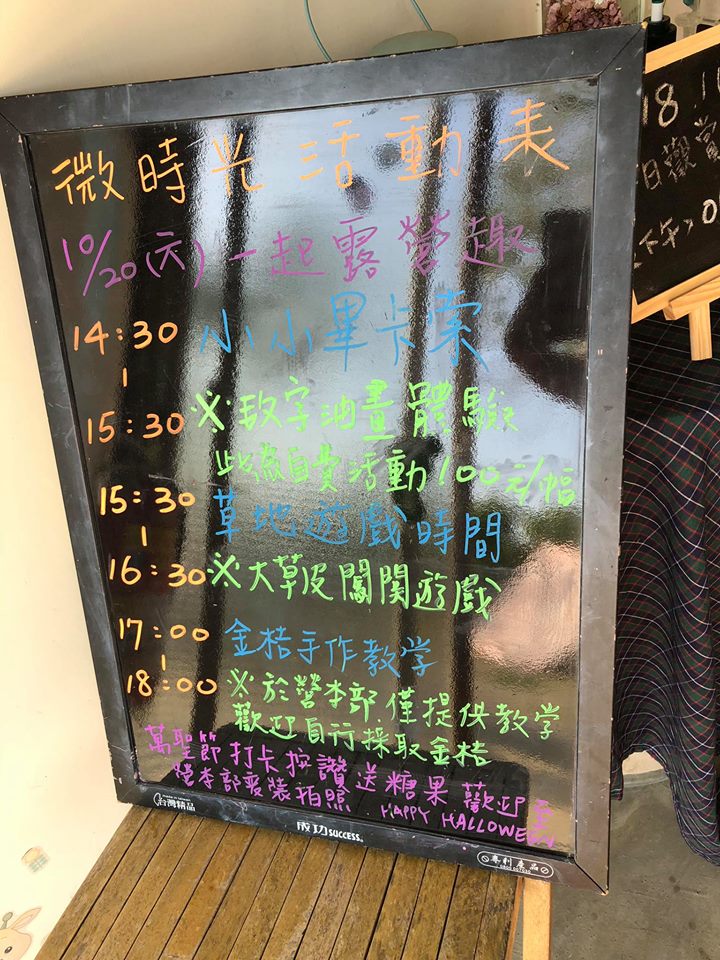 微時光活動表
10/20(六)一起露營趣
14:30 小小畢卡索
|
15:30 ※数字油畫體驗
此為自費活動100元/幅
15:30 草地遊戲時間
|
16:30 ※大草皮闖關遊戲
17:00 金桔手作教学
|
18:00 ※於營本部.僅提供教学
歡迎自行採取金桔
萬聖節打卡按讚送糖果歡迎至
營本部变裝拍照. HAPPY HALLOWEEN
台灣精品
成功SUCCESS
專利產品
18
日觀賞
下午